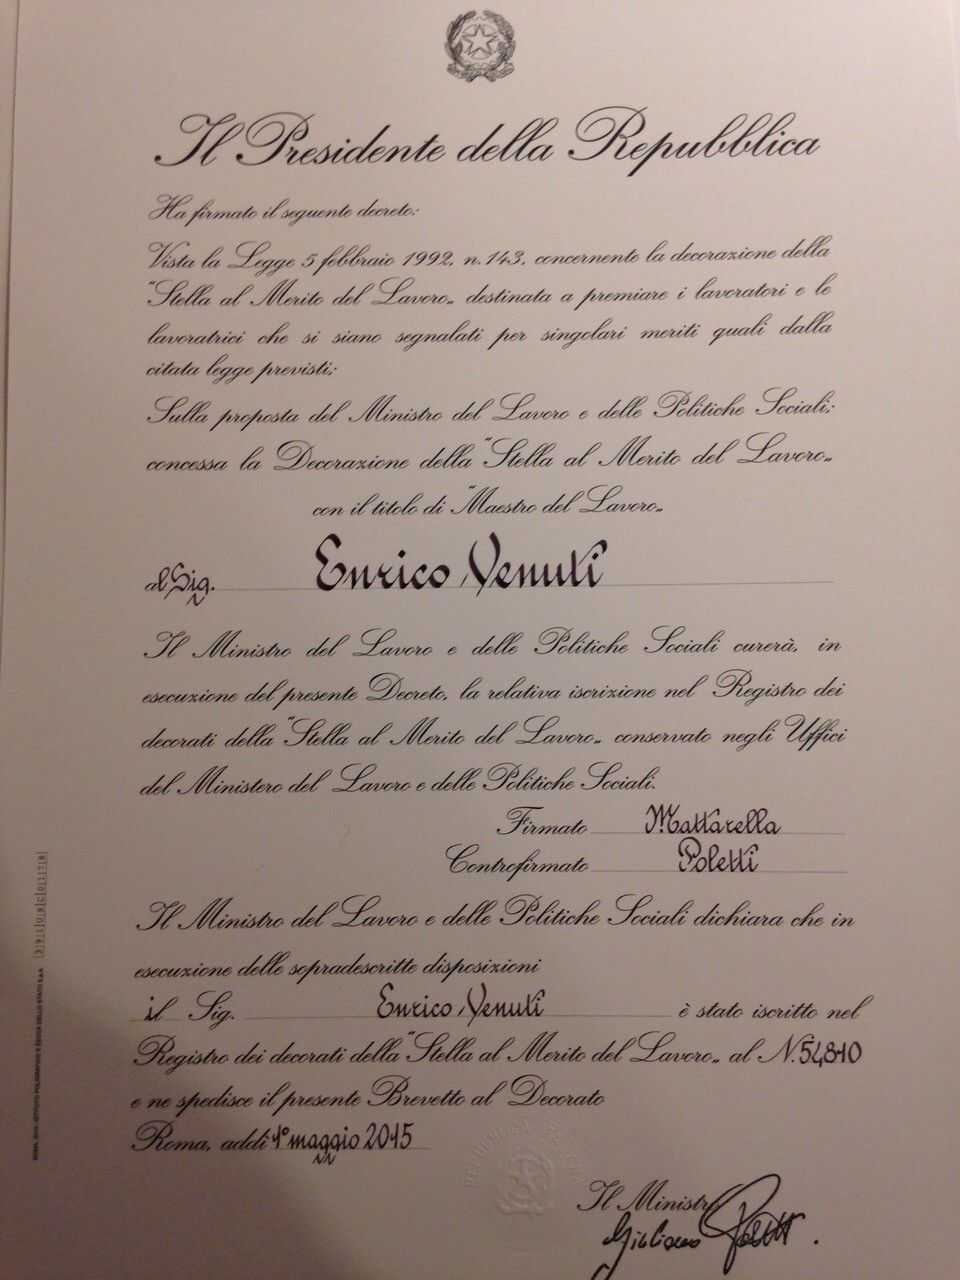 Il Presidente della Repubblica
Ha firmato il seguente decreto:
Vista la Legge 5 febbraio 1992, n. 143, concernente la decorazione della
"Stella al Merito del Lavoro„ destinata a premiare i lavoratori e le
lavoratrici che si siano segnalati per singolari meriti quali dalla
citata legge previsti;
Sulla proposta del Ministro del Lavoro e delle Politiche Sociali;
concessa la Decorazione della "Stella al Merito del Lavoro„
con il titolo di "Maestro del Lavoro„
al Sig. Enrico Venuti
Il Ministro del Lavoro e delle Politiche Sociali curerà, in
esecuzione del presente Decreto, la relativa iscrizione nel Registro dei
decorati della "Stella al Merito del Lavoro„ conservato negli Uffici
del Ministero del Lavoro e delle Politiche Sociali.
Firmato Mattarella
Controfirmato Poletti
Il Ministro del Lavoro e delle Politiche Sociali dichiara che in
esecuzione delle sopradescritte disposizioni
il Sig. Enrico Venuti è stato iscritto nel
Registro dei decorati della "Stella al Merito del Lavoro„ al N. 54810
e ne spedisce il presente Brevetto al Decorato
Roma, addì 1° maggio 2015
Il Ministro
Giuliano Poletti
ISTITUTO POLIGRAFICO E ZECCA DELLO STATO S.p.A.